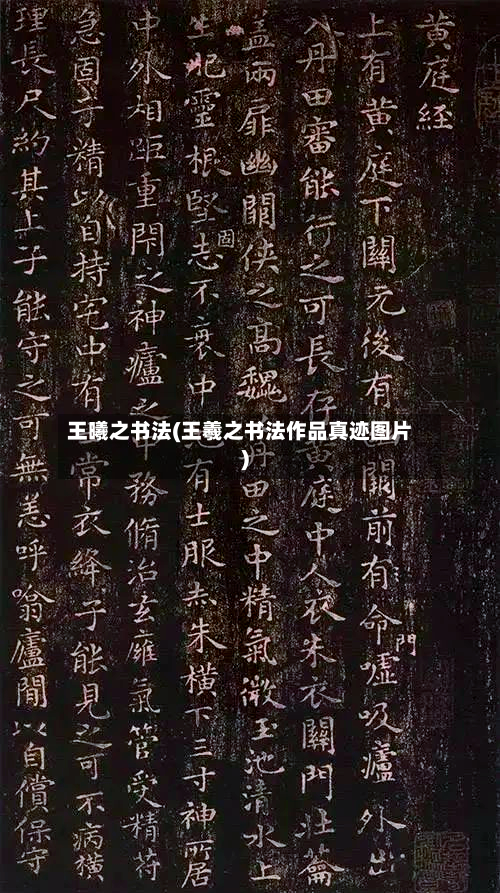 黄庭經
上有黄庭下關元後有幽闕前有命嘘吸廬外出
入丹田審能行之可長存黄庭中人衣朱衣關門壮蘥
盖兩扉幽闕侠之髙巍丹田之中精氣微玉池清水上
生肥靈根堅志不衰中有士服赤朱横下三寸神所居
固
門
中外相距重閇之神廬之中務脩治玄廱氣管受精苻
急固子精以自持宅中有常衣絳子能見之可不病横
理長尺約其上子能守之可無恙呼噏廬間以自償保守
王曦之书法(王羲之书法作品真迹图片
)